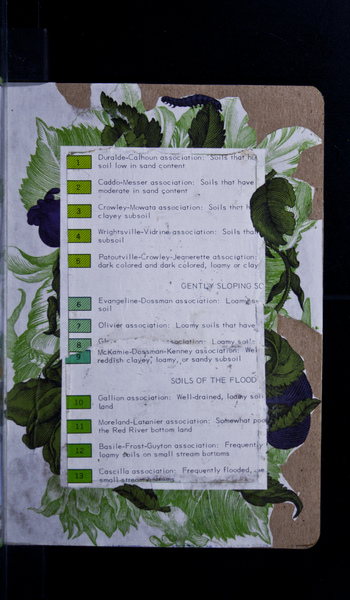 1 Duralde-Calhoun association: Soils that
soil low in sand content
2 Caddo-Messer association: Soils that have
moderate in sand content
3 Crowley-Mowata association: Soils that
clayey subsoil
4 Wrightsville-Vidrine association: Soils that
subsoil
5 Patoutville-Crowley-Jeanerette association:
dark colored and dark colored, loamy or clay
GENTLY SLOPING SO
6 Evangeline-Dossman association: Loamy
soil
7 Olivier association: Loamy soils that have
8 association: Loamy soils
9 McKamie-Dossman-Kenney association: Wel
reddish clayey, loamy, or sandy subsoil
SOILS OF THE FLOOD
10 Gallion association: Well-drained, loamy soils
land
11 Moreland-Latanier association: Somewhat poo
the Red River bottom land
12 Basile-Frost-Guyton association: Frequently
loamy soils on small stream bottoms
13 Cascilla association: Frequently flooded,
small stream